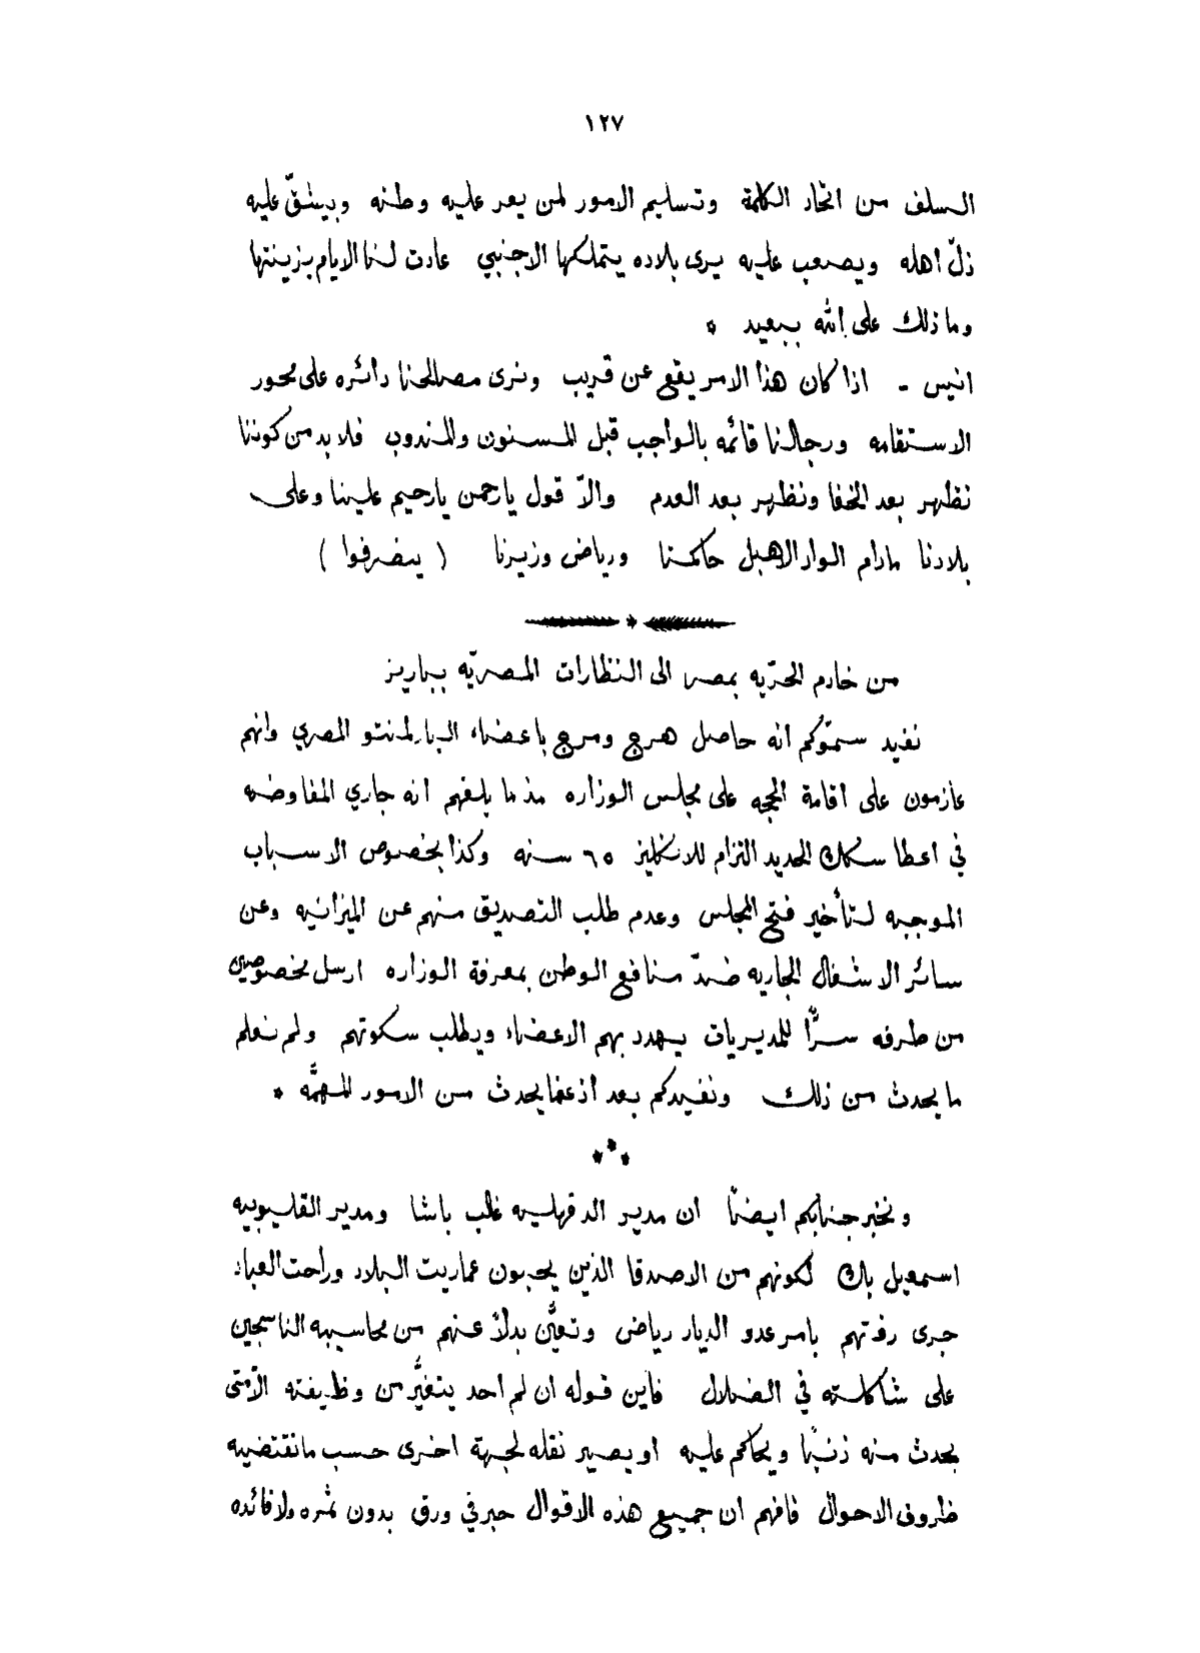 ١٢٧
السلف من اتحاد الكلمة وتسليم الامور لمن يعز عليه وطنه ويشقّ عليه
ذلّ اهله ويصعب عليه يرى بلاده يتملكها الاجنبي عادت لنا الايام بزينتها
وما ذلك على الله ببعيد *
انيس - اذا كان هذا الامر يقع عن قريب ونرى مصالحنا دائره على محور
الاستقامه ورجالنا قائمه بالواجب قبل المسنون والمندوب فلا بد من كوننا
نظهر بعد الخفا ونظهر بعد العدم والاّ قول يا رحمن يا رحيم علينا وعلى
بلادنا مادام الواد الاهبل حاكمنا ورياض وزيرنا ( ينصرفوا )
من خادم الحرّيه بمصر الى النظارات المصريّه بباريز
نفيد سموّكم انه حاصل هرج ومرج باعضاء البارلمنتو المصري وانهم
عازمون على اقامة الحجه على مجلس الوزاره مذ ما بلغهم انه جاري المفاوضه
في اعطا سكك الحديد التزام للانكليز ٦٥ سنه وكذا بخصوص الاسباب
الموجبه لتأخير فتح المجلس وعدم طلب التصديق منهم عن الميزانيه وعن
سائر الاشغال الجاريه ضدّ منافع الوطن بمعرفة الوزاره ارسل مخصوصين
من طرفه سرًّا للمديريات يهدد بهم الاعضاء ويطلب سكوتهم ولم نعلم
ما يحدث من ذلك ونفيدكم بعد اذ عما يحدث من الامور المهمَّه *
***
ونخبر جنابكم ايضًا ان مدير الدقهليه غالب باشا ومدير القليوبيه
اسمعيل بك لكونهم من الاصدقا الذين يحبون عماريت البلاد وراحت العباد
جرى رفتهم بامر عدو الديار رياض وتعيَّن بدلاً عنهم من محاسيبه الناسجين
على شاكلته في الضلال فاين قوله ان لم احد يتغيَّر من وظيفته الّا متى
يحدث منه ذنبًا ويحاكم عليه او يصير نقله لجهة اخرى حسب ما تقتضيه
ظروف الاحوال فافهم ان جميع هذه الاقوال حبر في ورق بدون ثمره ولا فائده